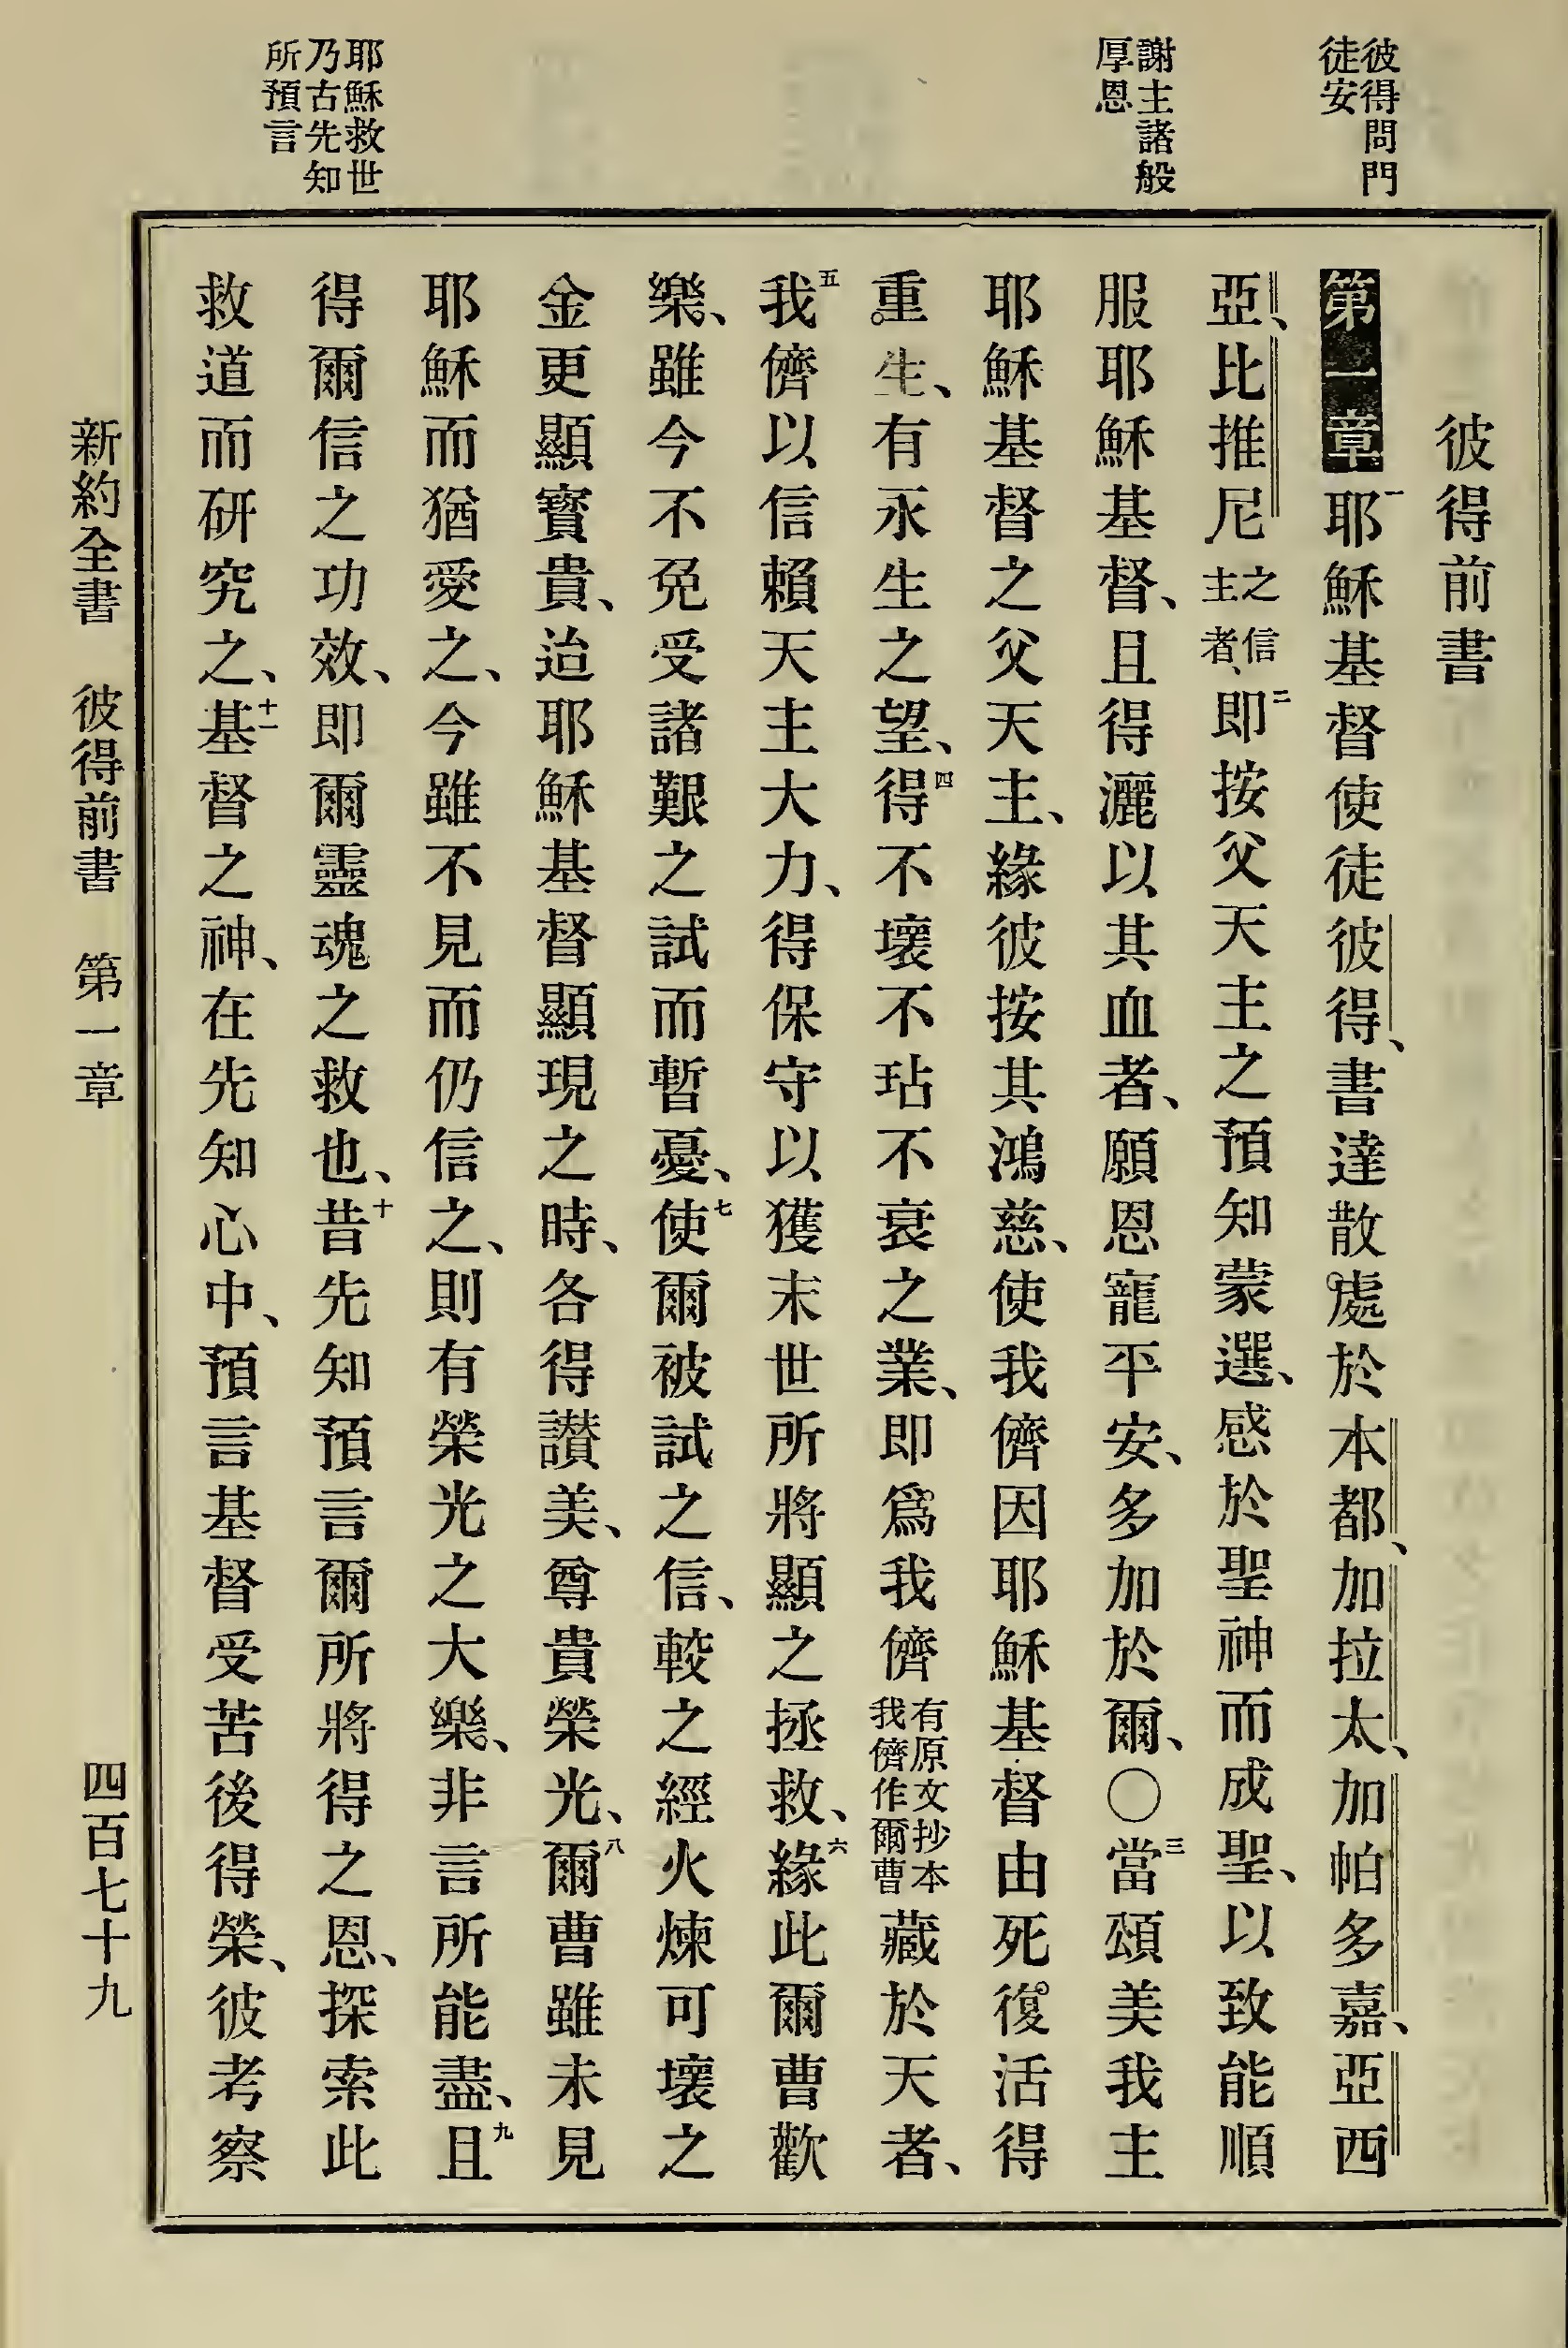 彼得問門
徒安
謝主諸般
厚恩
耶穌救世
乃古先知
所預言
彼得前書
第一章一耶穌基督使徒彼得、書達散處於本都、加拉太、加帕多嘉、亞西
亞、比推尼之信主者、二即按父天主之預知蒙選、感於聖神而成聖、以致能順
服耶穌基督、且得灑以其血者、願恩寵平安、多加於爾、〇三當頌美我主
耶穌基督之父天主、緣彼按其鴻慈、使我儕因耶穌基督由死復活得
重生、有永生之望、四得不壞不玷不衰之業、即爲我儕有原文抄本我儕作爾曹藏於天者、
五我儕以信賴天主大力、得保守以獲末世所將顯之拯救、六緣此爾曹歡
樂、雖今不免受諸艱之試而暫憂、七使爾被試之信、較之經火煉可壞之
金更顯寶貴、迨耶穌基督顯現之時、各得讃美、尊貴榮光、八爾曹雖未見
耶穌而猶愛之、今雖不見而仍信之、則有榮光之大樂、非言所能盡、九且
得爾信之功效、即爾靈魂之救也、十昔先知預言爾所將得之恩、探索此
救道而研究之、十一基督之神、在先知心中、預言基督受苦後得榮、彼考察
新約全書 彼得前書 第一章 四百七十九